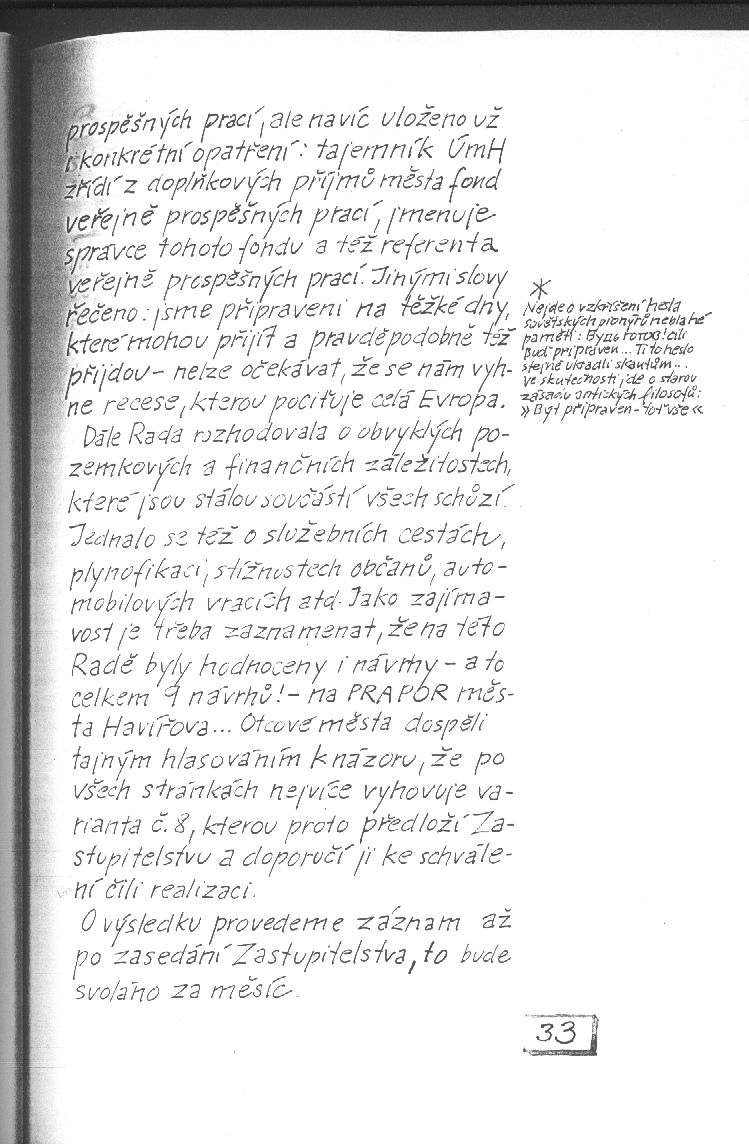 prospěšných prací, ale navíc uloženo už
i konkrétní opatření: tajemník ÚmH
zřídí z doplňkových příjmů města fond
veřejně prospěšných prací, jmenuje
správce tohoto fondu a též referenta
veřejně prospěšných prací. Jinými slovy
řečeno: jsme připraveni na těžké dny,
které mohou přijít a pravděpodobně též
přijdou – nelze očekávat, že se nám vyh-
ne recese, kterou pociťuje celá Evropa.
Dále Rada rozhodovala o obvyklých po-
zemkových a finančních záležitostech,
které jsou stálou součástí všech schůzí.
Jednalo se též o služebních cestách,
plynofikaci, stížnostech občanů, auto-
mobilových vracích atd. Jako zajíma-
vost je třeba zaznamenat, že na této
Radě byly hodnoceny i návrhy – a to
celkem 9 návrhů! – na PRAPOR měs-
ta Havířova... Otcové města dospěli
tajným hlasováním k názoru, že po
všech stránkách nejvíce vyhovuje va-
rianta č. 8, kterou proto předloží Za-
stupitelstvu a doporučí ji ke schvále-
ní čili realizaci.
O výsledku provedeme záznam až
po zasedání Zastupitelstva, to bude
svoláno za měsíc.
*
Nejde o vzkříšení hesla
sovětských pionýrů neblahé
paměti: Будь готов! čili
Buď připraven... Ti to heslo
stejně ukradli skautům...
Ve skutečnosti jde o starou
zásadu antických filosofů:
»Být připraven – toť vše«
33